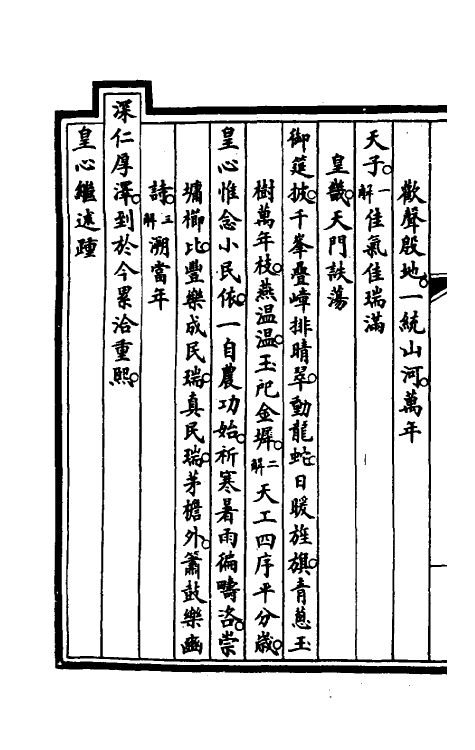 歡聲殷地。一統山河。萬年
天子。一解佳氣佳瑞滿
皇畿。天門詄蕩
御筵披。千峯疊嶂排晴翠。動龍蛇。日暖旌旗。青葱玉
樹萬年枝。燕温温。玉戺金墀。二解天工四序平分歲。
皇心惟念小民依。一自農功始。祈寒暑雨徧疇咨。崇
墉櫛比。豐樂成民瑞。真民瑞。茅檐外。簫鼓樂豳
詩。三解溯當年
深仁厚澤。到於今累洽重熙。
皇心繼述踵